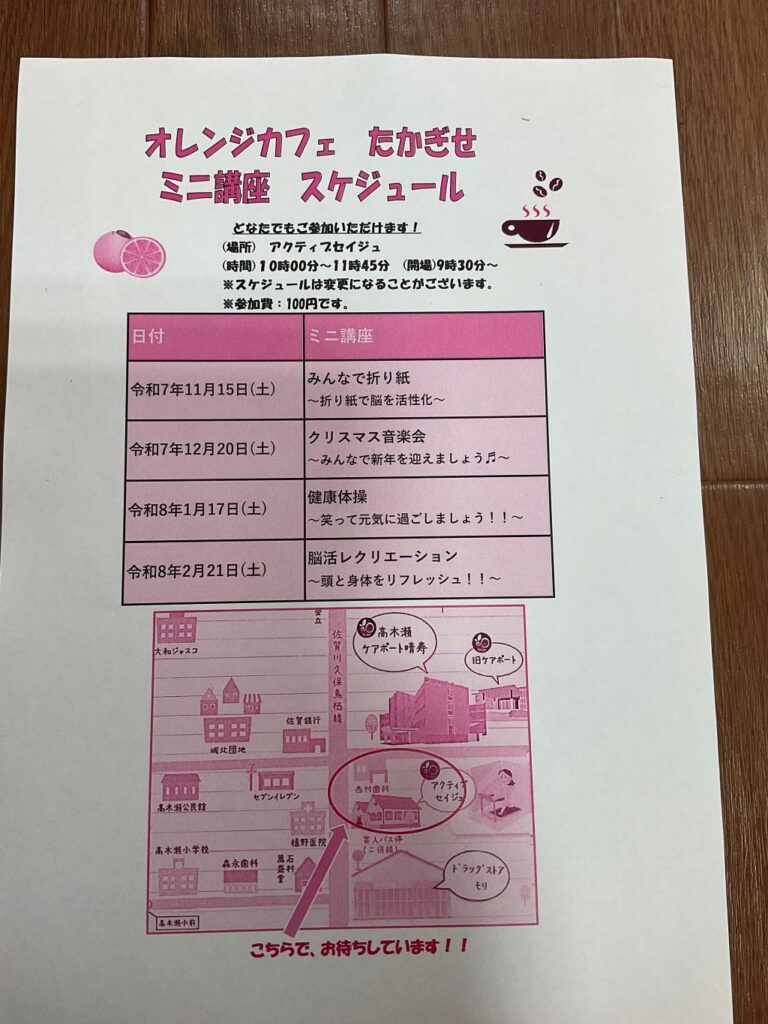 オレンジカフェ　たかぎせ
ミニ講座　スケジュール
どなたでもご参加いただけます！
(場所)　アクティブセイジュ
(時間)１０時00分～11時45分　(開場)9時30分～
※スケジュールは変更になることがございます。
※参加費：100円です。
日付
ミニ講座
令和7年11月15日(土)
みんなで折り紙
～折り紙で脳を活性化～
令和7年12月20日(土)
クリスマス音楽会
～みんなで新年を迎えましょう♬～
令和8年1月17日(土)
健康体操
～笑って元気に過ごしましょう！！～
令和8年2月21日(土)
脳活レクリエーション
～頭と身体をリフレッシュ！！～
大和ジャスコ
佐賀川久保鳥栖線
高木瀬
ケアポート晴寿
旧ケアポート
佐賀銀行
城北団地
西村歯科
アクティブ
セイジュ
高木瀬公民館
セブンイレブン
高木瀬小学校
森永歯科
(二俣線)
ドラッグストア
モリ
高木瀬小前
こちらで、お待ちしています！！